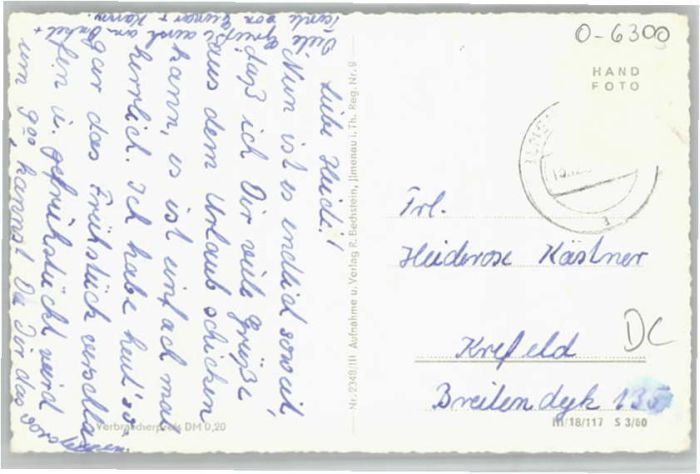 Liebe Heidi!
Nun ist es endlich soweit,
daß ich Dir viele Grüße
aus dem Urlaub schicken
kann, es ist einfach mal
herrlich. Ich habe heut's so
gar das Frühstück verschla
fen u. gefrühstückt wird
um 9⁰⁰, kannst Du Dir das
Viele Grüße auch an Onkel +
Tante von
Nr. 2348/III Aufnahme u. Verlag R. Bechstein, Ilmenau i. Th. Reg. Nr. 9
Verbraucherpreis DM 0,20
O-6300
HAND
FOTO
Frl.
Heiderose Kästner
Krefeld
DC
Breitendyk 135
III/18/117 S 3/60